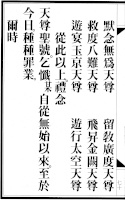 默念無為天尊　留敎廣度天尊
救度八難天尊　飛昇金闕天尊
遊宴玉京天尊　遊行太空天尊
從此以上禮念
天尊聖號乞懺某甲自從無始以來至於
今日種種罪業
爾時